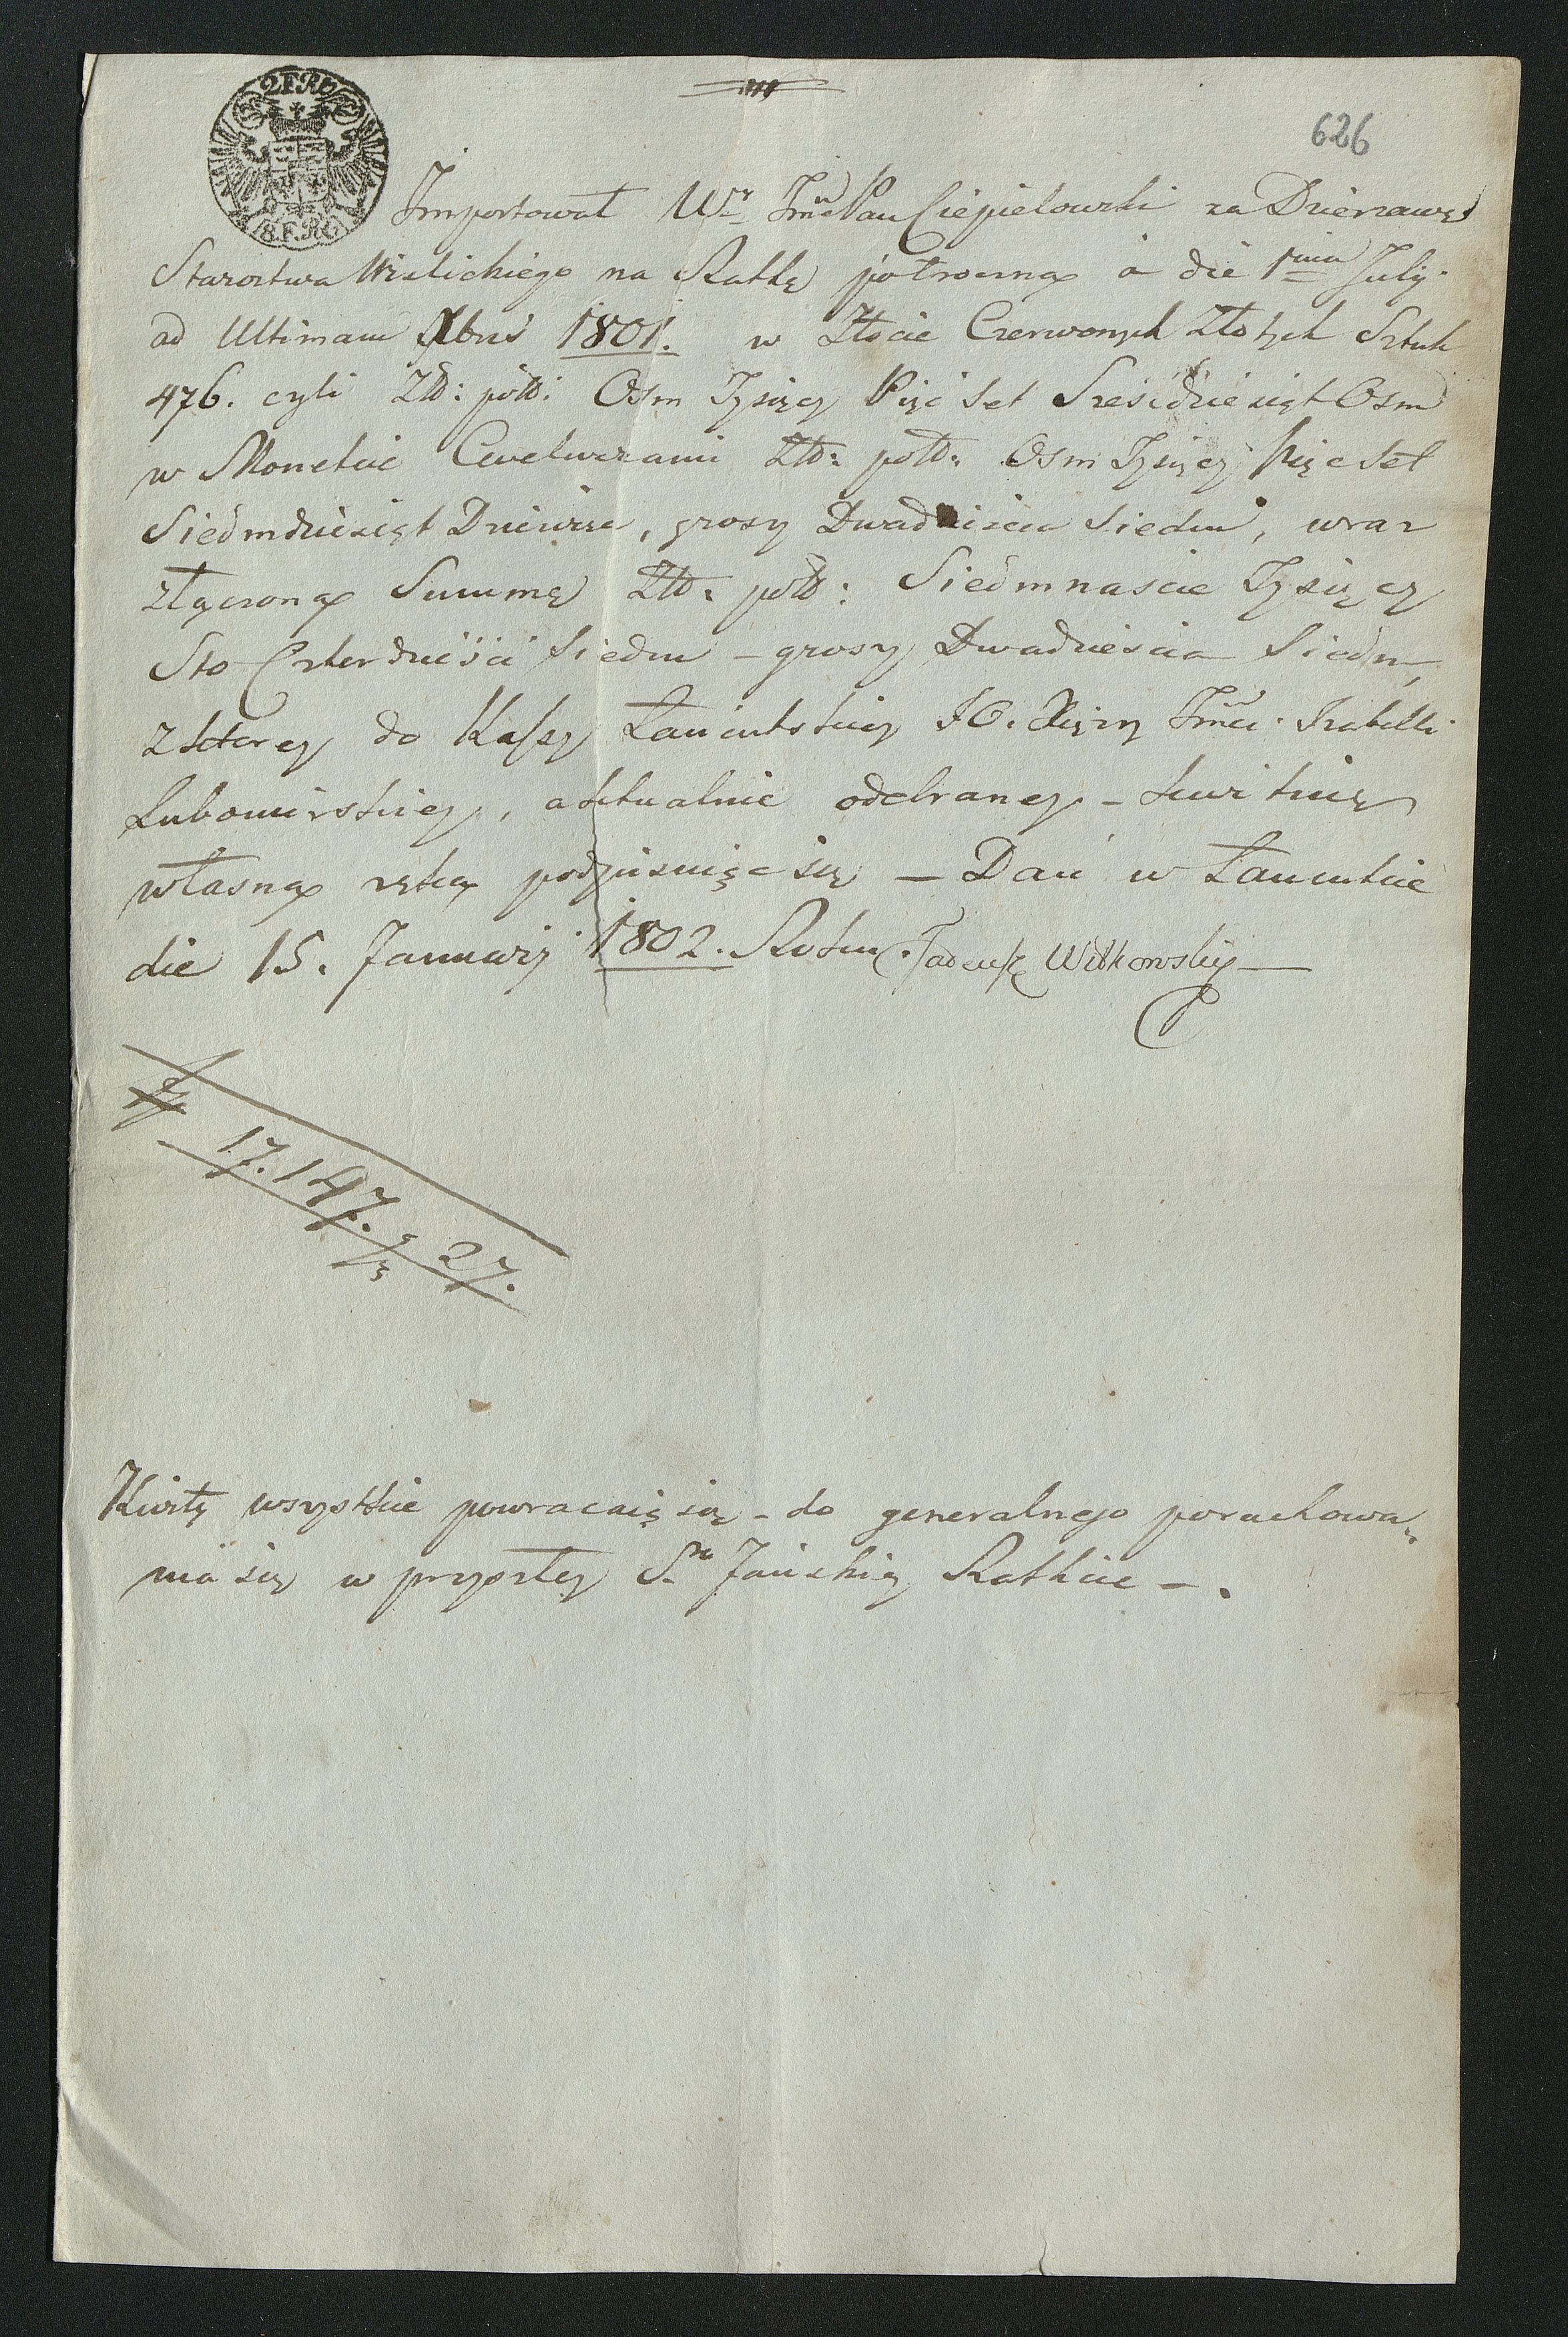 2 F. RG
8. F. RG
626
Importował Wr. Jmć Pan Ciepielowski za Dzierzawę
Starostwa Wiślickiego na Ratkę połroczną a die 1ma July
ad Ultimam Xbris 1801. w Złocie Czerwonych Złotych Sztuk
476. czyli Złł: poll: Osm Tysięcy Pięć Set Sześćdziesiąt Osm
w Monetcie Cwelwerami Złł: poll: Osm Tysięcy Pięcset
Siedmdziesiąt Dziewięć, groszy Dwadziescia Siedm, wraz
złączoną Summę Złł: poll: Siedmnascie Tysięcy
Sto Czterdzieści Siedm – groszy Dwadziescia Siedm,
z ktorey do Kassy Łancutskiey JO. Xiężny Jmci Izabelli
Lubomirskiey, aktualnie odebraney – kwituię
własną ręką podpisuiąc się – Dań w Łancutcie
die 15. Januarij 1802. Tadeusz Witkowsky
17.147. g 27.
Kwity wszystkie powracaią się – do generalnego porachowa„
nia się w przyszłey S. Jańskiey Ratkcie – .